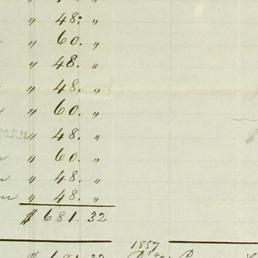 " 48. "
" 60. "
" 48. "
" 48. "
" 60. "
" 48. "
" 60. "
" 48. "
" 48. "
$ 681. 32
1857